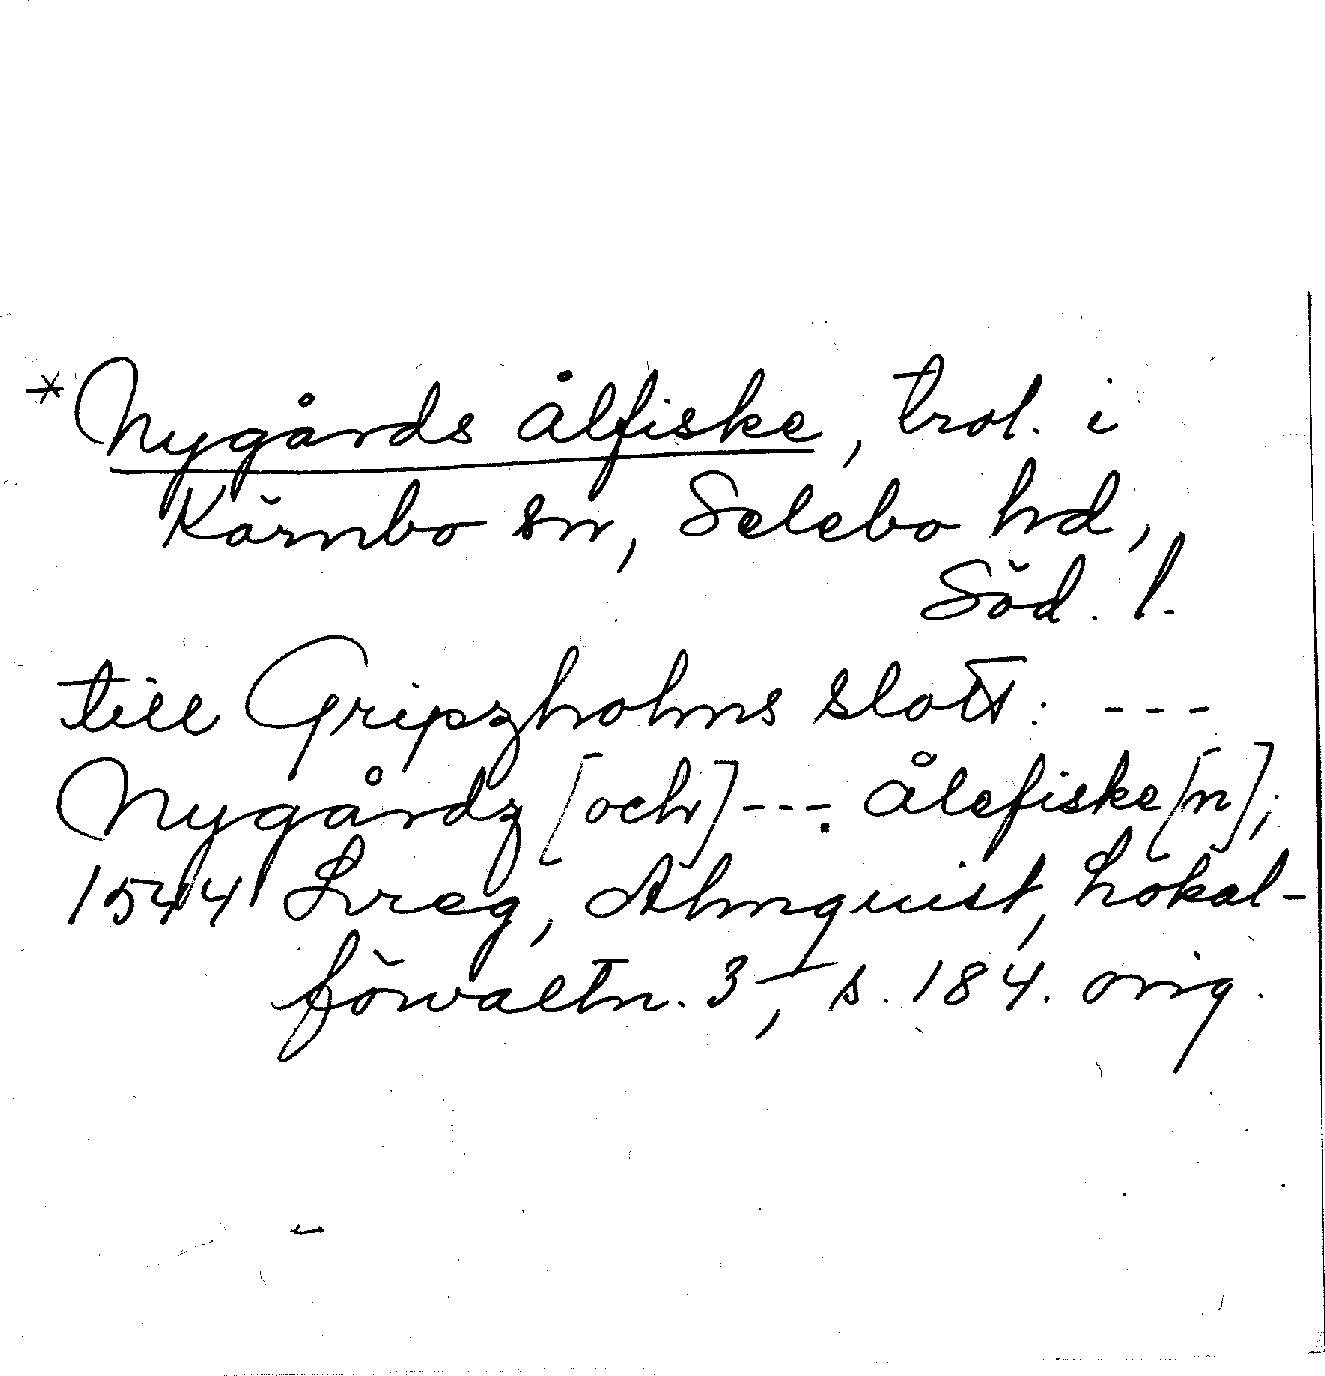 *Nygårds ålfiske, trol. i
Kärnbo sn, Selebo hd,
Söd. l.
till Gripzholms slott: ---
Nygårdz [och] --- ålefiske[n];
1544 Lreg, Almquist, Lokal-
förvaltn. 3, s. 184. orig.